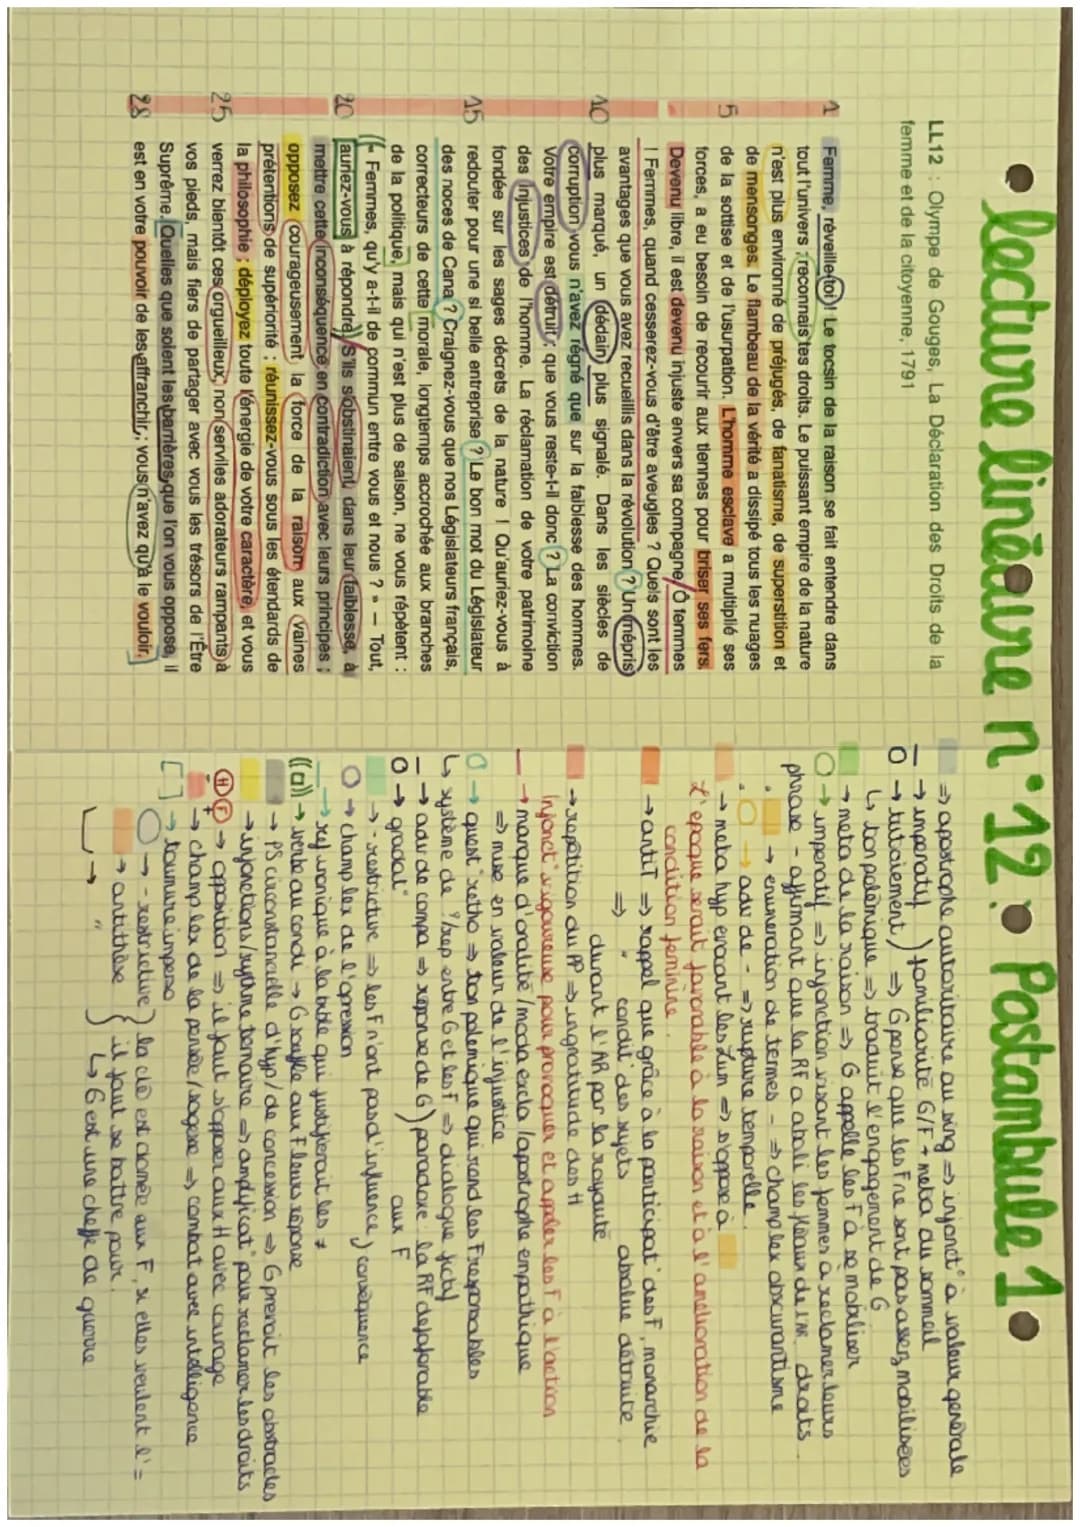 • lecture linéaire n°12 : • Postambule 1 •
LL12 : Olympe de Gouges, La Déclaration des Droits de la
femme et de la citoyenne, 1791
1 Femme, réveille-toi ! Le tocsin de la raison se fait entendre dans
tout l'univers ; reconnais tes droits. Le puissant empire de la nature
n'est plus environné de préjugés, de fanatisme, de superstition et
de mensonges. Le flambeau de la vérité a dissipé tous les nuages
5 de la sottise et de l'usurpation. L'homme esclave a multiplié ses
forces, a eu besoin de recourir aux tiennes pour briser ses fers.
Devenu libre, il est devenu injuste envers sa compagne. Ô femmes
! Femmes, quand cesserez-vous d'être aveugles ? Quels sont les
avantages que vous avez recueillis dans la révolution ? Un mépris
10 plus marqué, un dédain plus signalé. Dans les siècles de
corruption vous n'avez régné que sur la faiblesse des hommes.
Votre empire est détruit ; que vous reste-t-il donc ? La conviction
des injustices de l'homme. La réclamation de votre patrimoine
fondée sur les sages décrets de la nature ! Qu'auriez-vous à
15 redouter pour une si belle entreprise ? Le bon mot du Législateur
des noces de Cana ? Craignez-vous que nos Législateurs français,
correcteurs de cette morale, longtemps accrochée aux branches
de la politique, mais qui n'est plus de saison, ne vous répètent :
(« Femmes, qu'y a-t-il de commun entre vous et nous ? » — Tout,
20 auriez-vous à répondre)) S'ils s'obstinaient, dans leur faiblesse, à
mettre cette inconséquence en contradiction avec leurs principes ;
opposez courageusement la force de la raison aux vaines
prétentions de supériorité ; réunissez-vous sous les étendards de
la philosophie ; déployez toute l'énergie de votre caractère, et vous
25 verrez bientôt ces orgueilleux, non serviles adorateurs rampants à
vos pieds, mais fiers de partager avec vous les trésors de l'Être
Suprême. [Quelles que soient les barrières que l'on vous oppose, il
28 est en votre pouvoir de les affranchir ; vous n'avez qu'à le vouloir.]
⇒ apostrophe autoritaire au sing ⇒ injonct° à valeur générale
→ imperatif ) familiarité G/F + meta du sommeil
→ tutoiement ) ⇒ G pense que les F ne sont pas assez mobilisées
↳ ton polémique ⇒ traduit l'engagement de G
→ meta de la raison ⇒ G appelle les F à se mobiliser
→ imperatif ⇒ injonction visant les femmes a reclamer leurs
phrase - affirmant que la RF a aboli les fléaux de l'AR. droits.
• → enumeration de termes - ⇒ champ lex obscurantisme
• → adv de - ⇒ rupture temporelle.
→ meta hyp evocant les Lum ⇒ s'oppose à
L'epoque serait favorable à la raison et à l'amélioration de la
condition feminine.
→ antiT ⇒ rappel que grâce à la participat° des F, monarchie
⇒ " condit° des sujets absolue détruite.
durant l'AR par la royauté
→ repétition du PP ⇒ ingratitude des H
Injonct° rigoureuse pour provoquer et appeler les F à l'action
→ marque d'oralité / moda excla / apostrophe empathique
⇒ mise en valeur de l'injustice
→ quest° retho ⇒ ton polemique qui rend les F responsables
↳ système de ?/rep entre G et les F ⇒ dialogue fictif
→ adv de compa ⇒ reponse de G ) paradoxe la RF defavorable
→ gradat° aux F
→ - restrictive ⇒ les F n'ont pas d'influence ) consequence
→ champ lex de l'opression
→ ref ironique à la bible qui justifierait les ≠
((□)) → verbe au condi → G souffle aux F leurs réponse
→ PS circonstancielle d'hyp / de concession ⇒ G prevoit les obstacles
→ injonctions / rythme ternaire ⇒ amplificat° pour reclamer les droits
(H) (F) → opposition ⇒ il faut s'opposer aux H avec courage
- +
→ champ lex de la pensée / sagesse ⇒ combat avec intelligence
[ ] → tournure imperso
→ - restrictive ) la clé est donnée aux F, si elles veulent l'=
→ antithèse } il faut se battre pour.
→ " ↳ G est une cheffe de guerre